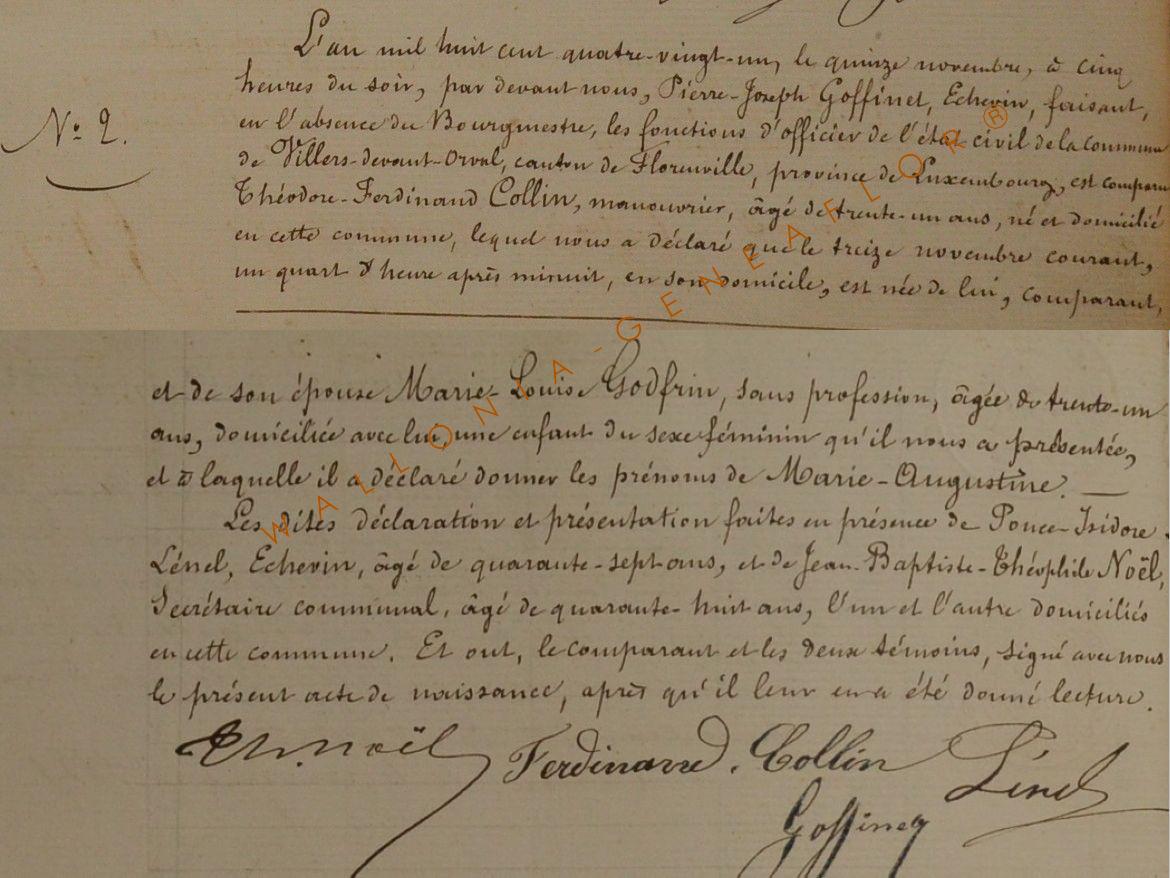 L'an mil huit cent quatre-vingt-un, le quinze novembre, à cinq
heures du soir, par devant nous, Pierre-Joseph Goffinet, Echevin, faisant,
en l'absence du Bourgmestre, les fonctions d'officier de l'état civil de la commune
Nº 2.
de Villers-devant-Orval, canton de Florenville, province de Luxembourg, est comparu
Théodore-Ferdinand Collin, manouvrier, âgé de trente-un ans, né et domicilié
en cette commune, lequel nous a déclaré que le treize novembre courant,
un quart d'heure après minuit, en son domicile, est née de lui, comparant,
et de son épouse Marie-Louise Godfrin, sans profession, âgée de trente-un
ans, domiciliée avec lui, une enfant du sexe féminin qu'il nous a présentée,
et à laquelle il a déclaré donner les prénoms de Marie-Augustine.
Les dites déclaration et présentation faites en présence de Ponce-Isidore
Lénel, Echevin, âgé de quarante-sept ans, et de Jean-Baptiste-Théophile Noël,
Secrétaire communal, âgé de quarante-huit ans, l'un et l'autre domiciliés
en cette commune. Et ont, le comparant et les deux témoins, signé avec nous
le présent acte de naissance, après qu'il leur en a été donné lecture.
Th. Noël Ferdinand. Collin Lénel
Goffinet
WALLONIA-GENEAFLOR®